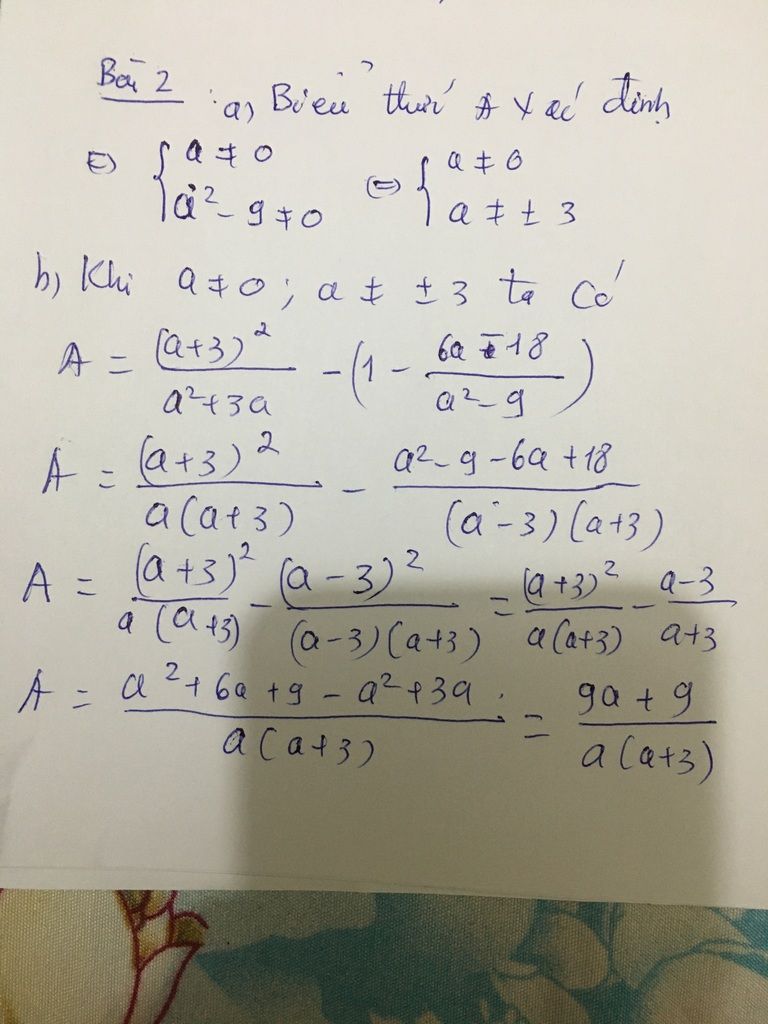 Bài 2 : a) Biểu thức A xác định
⇔ { a ≠ 0 a² - 9 ≠ 0 ⇔ { a ≠ 0 a ≠ ± 3
b) Khi a ≠ 0 ; a ≠ ± 3 ta có
A = (a+3)² / (a²+3a) - (1 - (6a - 18) / (a² - 9))
A = (a+3)² / (a(a+3)) - (a² - 9 - 6a + 18) / ((a - 3)(a+3))
A = (a+3)² / (a(a+3)) - (a - 3)² / ((a-3)(a+3)) = (a+3)² / (a(a+3)) - (a-3) / (a+3)
A = (a² + 6a + 9 - a² + 3a) / (a(a+3)) = (9a + 9) / (a(a+3))